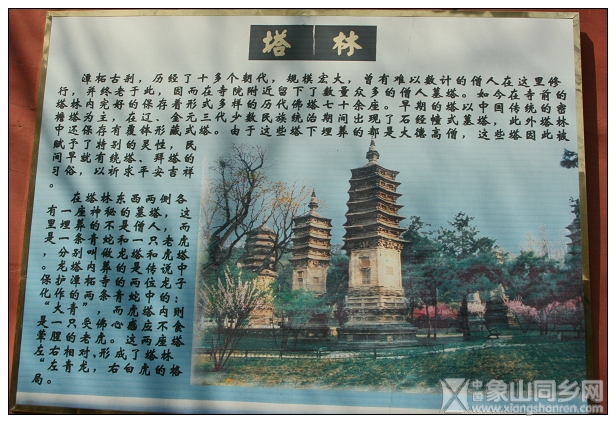 塔林
潭柘古刹，历经了十多个朝代，规模宏大，曾有难以数计的僧人在这里修
行，并终老于此，因而在寺院附近留下了数量众多的僧人墓塔。如今在寺前的
塔林内完好的保存着形式多样的历代佛塔七十余座。早期的塔以中国传统的密
檐塔为主，在辽、金元三代少数民族统治期间出现了石经幢式墓塔，此外塔林
中还保存有覆钵形藏式塔。由于这些塔下埋葬的都是大德高僧，这些塔因此被
赋予了特别的灵性，民
间早就有绕塔、拜塔的
习俗，以祈求平安吉祥
。
在塔林东西两侧各
有一座神秘的墓塔，这
里埋葬的不是僧人，而
是一条青蛇和一只老虎
。分别叫做龙塔和虎塔
。龙塔内葬的是传说中
保护潭柘寺的两位龙子
化作的两条青蛇中的：
“大青”，而虎塔内则
是一只受佛心感应不食
荤腥的老虎。这两座塔
左右相对、形成了塔林
“左青龙，右白虎的格
局。
中国象山同乡网
www.xiangshanren.com